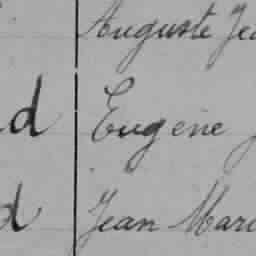 Auguste Jea
d Eugène J
d Jean Marc